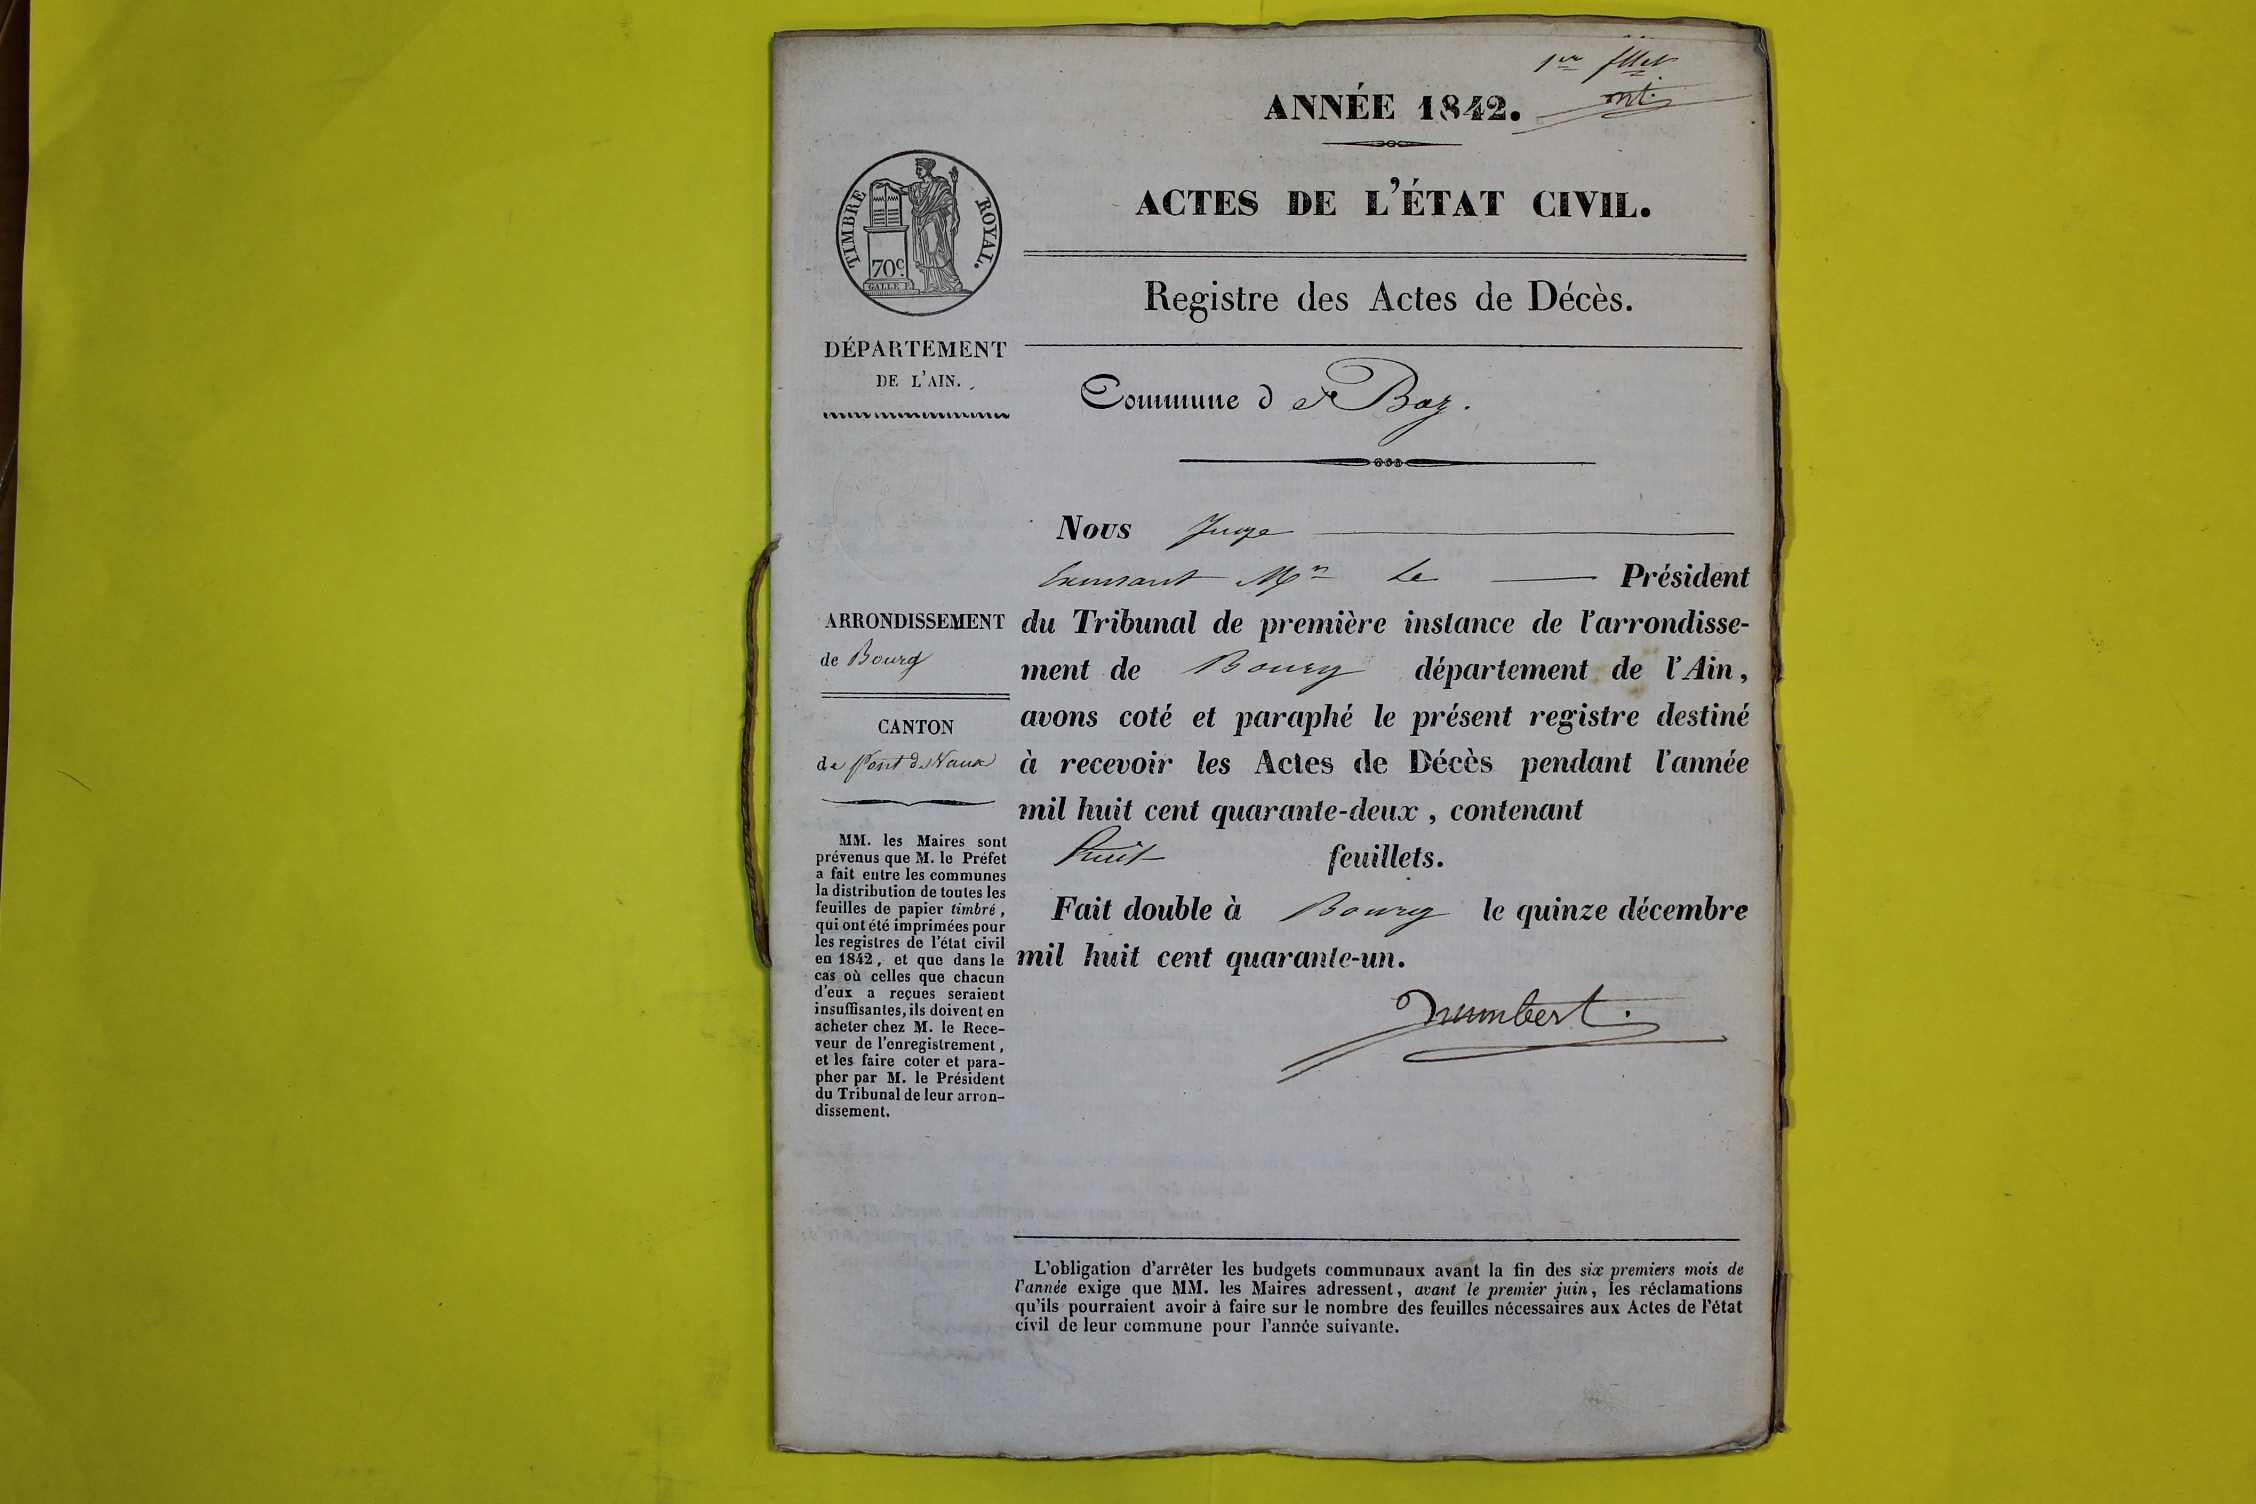 1er fllet
ANNÉE 1842.
ACTES DE L'ÉTAT CIVIL.
TIMBRE ROYAL.
70c.
GALLE F.
Registre des Actes de Décès.
DÉPARTEMENT
DE L'AIN.
Commune d e Boz.
Nous Juge
Exerçant Mr Le Président
du Tribunal de première instance de l'arrondisse-
ment de Bourg département de l'Ain,
avons coté et paraphé le présent registre destiné
à recevoir les Actes de Décès pendant l'année
mil huit cent quarante-deux, contenant
huit feuillets.
Fait double à Bourg le quinze décembre
mil huit cent quarante-un.
humbert.
ARRONDISSEMENT
de Bourg
CANTON
de Pont de Vaux
MM. les Maires sont
prévenus que M. le Préfet
a fait entre les communes
la distribution de toutes les
feuilles de papier timbré,
qui ont été imprimées pour
les registres de l'état civil
en 1842, et que dans le
cas où celles que chacun
d'eux a reçues seraient
insuffisantes, ils doivent en
acheter chez M. le Rece-
veur de l'enregistrement,
et les faire coter et para-
pher par M. le Président
du Tribunal de leur arron-
dissement.
L'obligation d'arrêter les budgets communaux avant la fin des six premiers mois de
l'année exige que MM. les Maires adressent, avant le premier juin, les réclamations
qu'ils pourraient avoir à faire sur le nombre des feuilles nécessaires aux Actes de l'état
civil de leur commune pour l'année suivante.